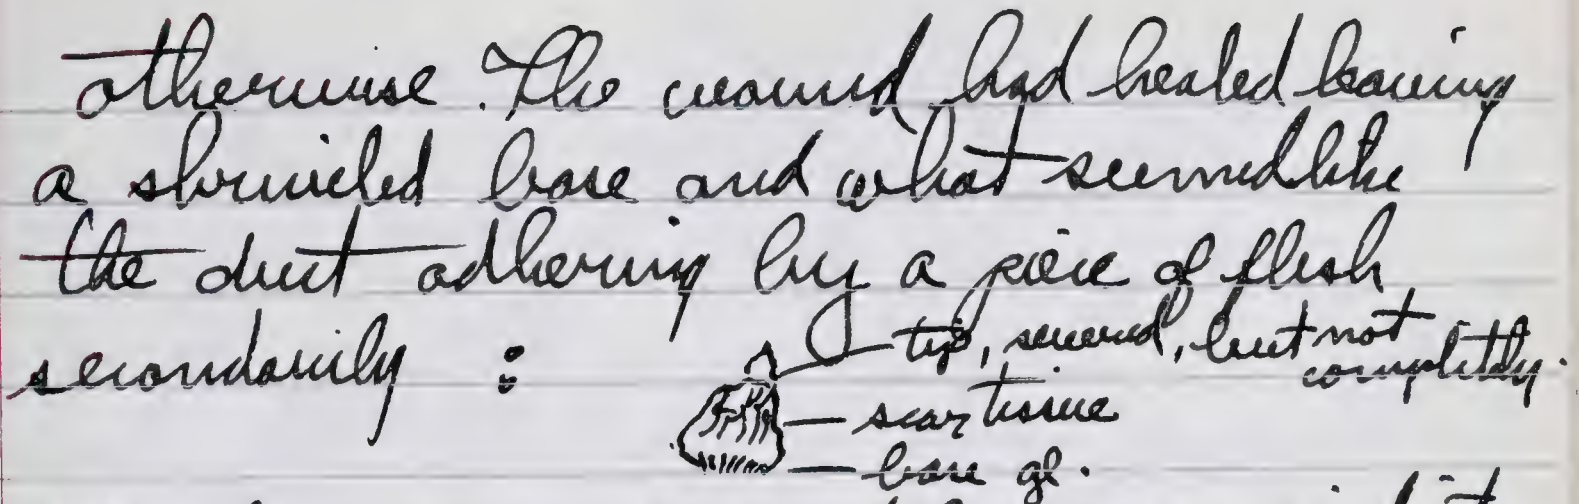 otherwise. The wound had healed leaving
a shriveled base and what seemed like
the duct adhering by a piece of flesh
secondarily :
tip, severed, but not
completely.
scar tissue
base gl.